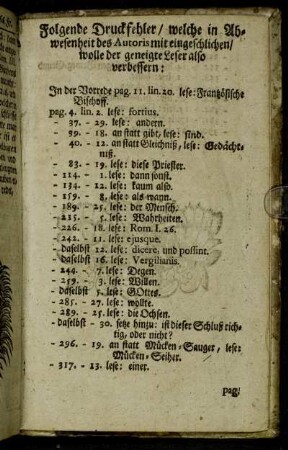 Folgende Druckfehler / welche in Ab-
wesenheit des Autoris mit eingeschlichen /
wolle der geneigte Leser also
verbessern:
In der Vorrede pag. 11. lin. 20. lese: Frantzösische
Bischoff.
pag. 4. lin. 2. lese: fortius.
- 37. - 29. lese: andern.
- 39. - 18. an statt gibt, lese: sind.
- 40. - 12. an statt Gleichniß, lese: Gedächt-
niß.
- 83. - 19. lese: diese Priester.
- 114. - 1. lese: dann sonst.
- 134. - 12. lese: kaum also.
- 159. - 8. lese: als wann.
- 189. - 25. lese: der Mensch.
- 215. - 5. lese: Wahrheiten.
- 226. - 18. lese: Rom. I. 26.
- 242. - 11. lese: ejusque.
- daselbst 12. lese: dicere, und possint.
- daselbst 16. lese: Vergilianis.
- 244. - 7. lese: Degen.
- 259. - 3. lese: Willen.
- daselbst 5. lese: GOttes.
- 285. - 27. lese: wollte.
- 289. - 25. lese: die Ochsen.
- daselbst - 30. setze hinzu: ist dieser Schluß rich-
tig, oder nicht?
- 296. - 19. an statt Mücken-Sauger, lese:
Mücken-Seiher.
- 317. - 13. lese: einer.
pag.